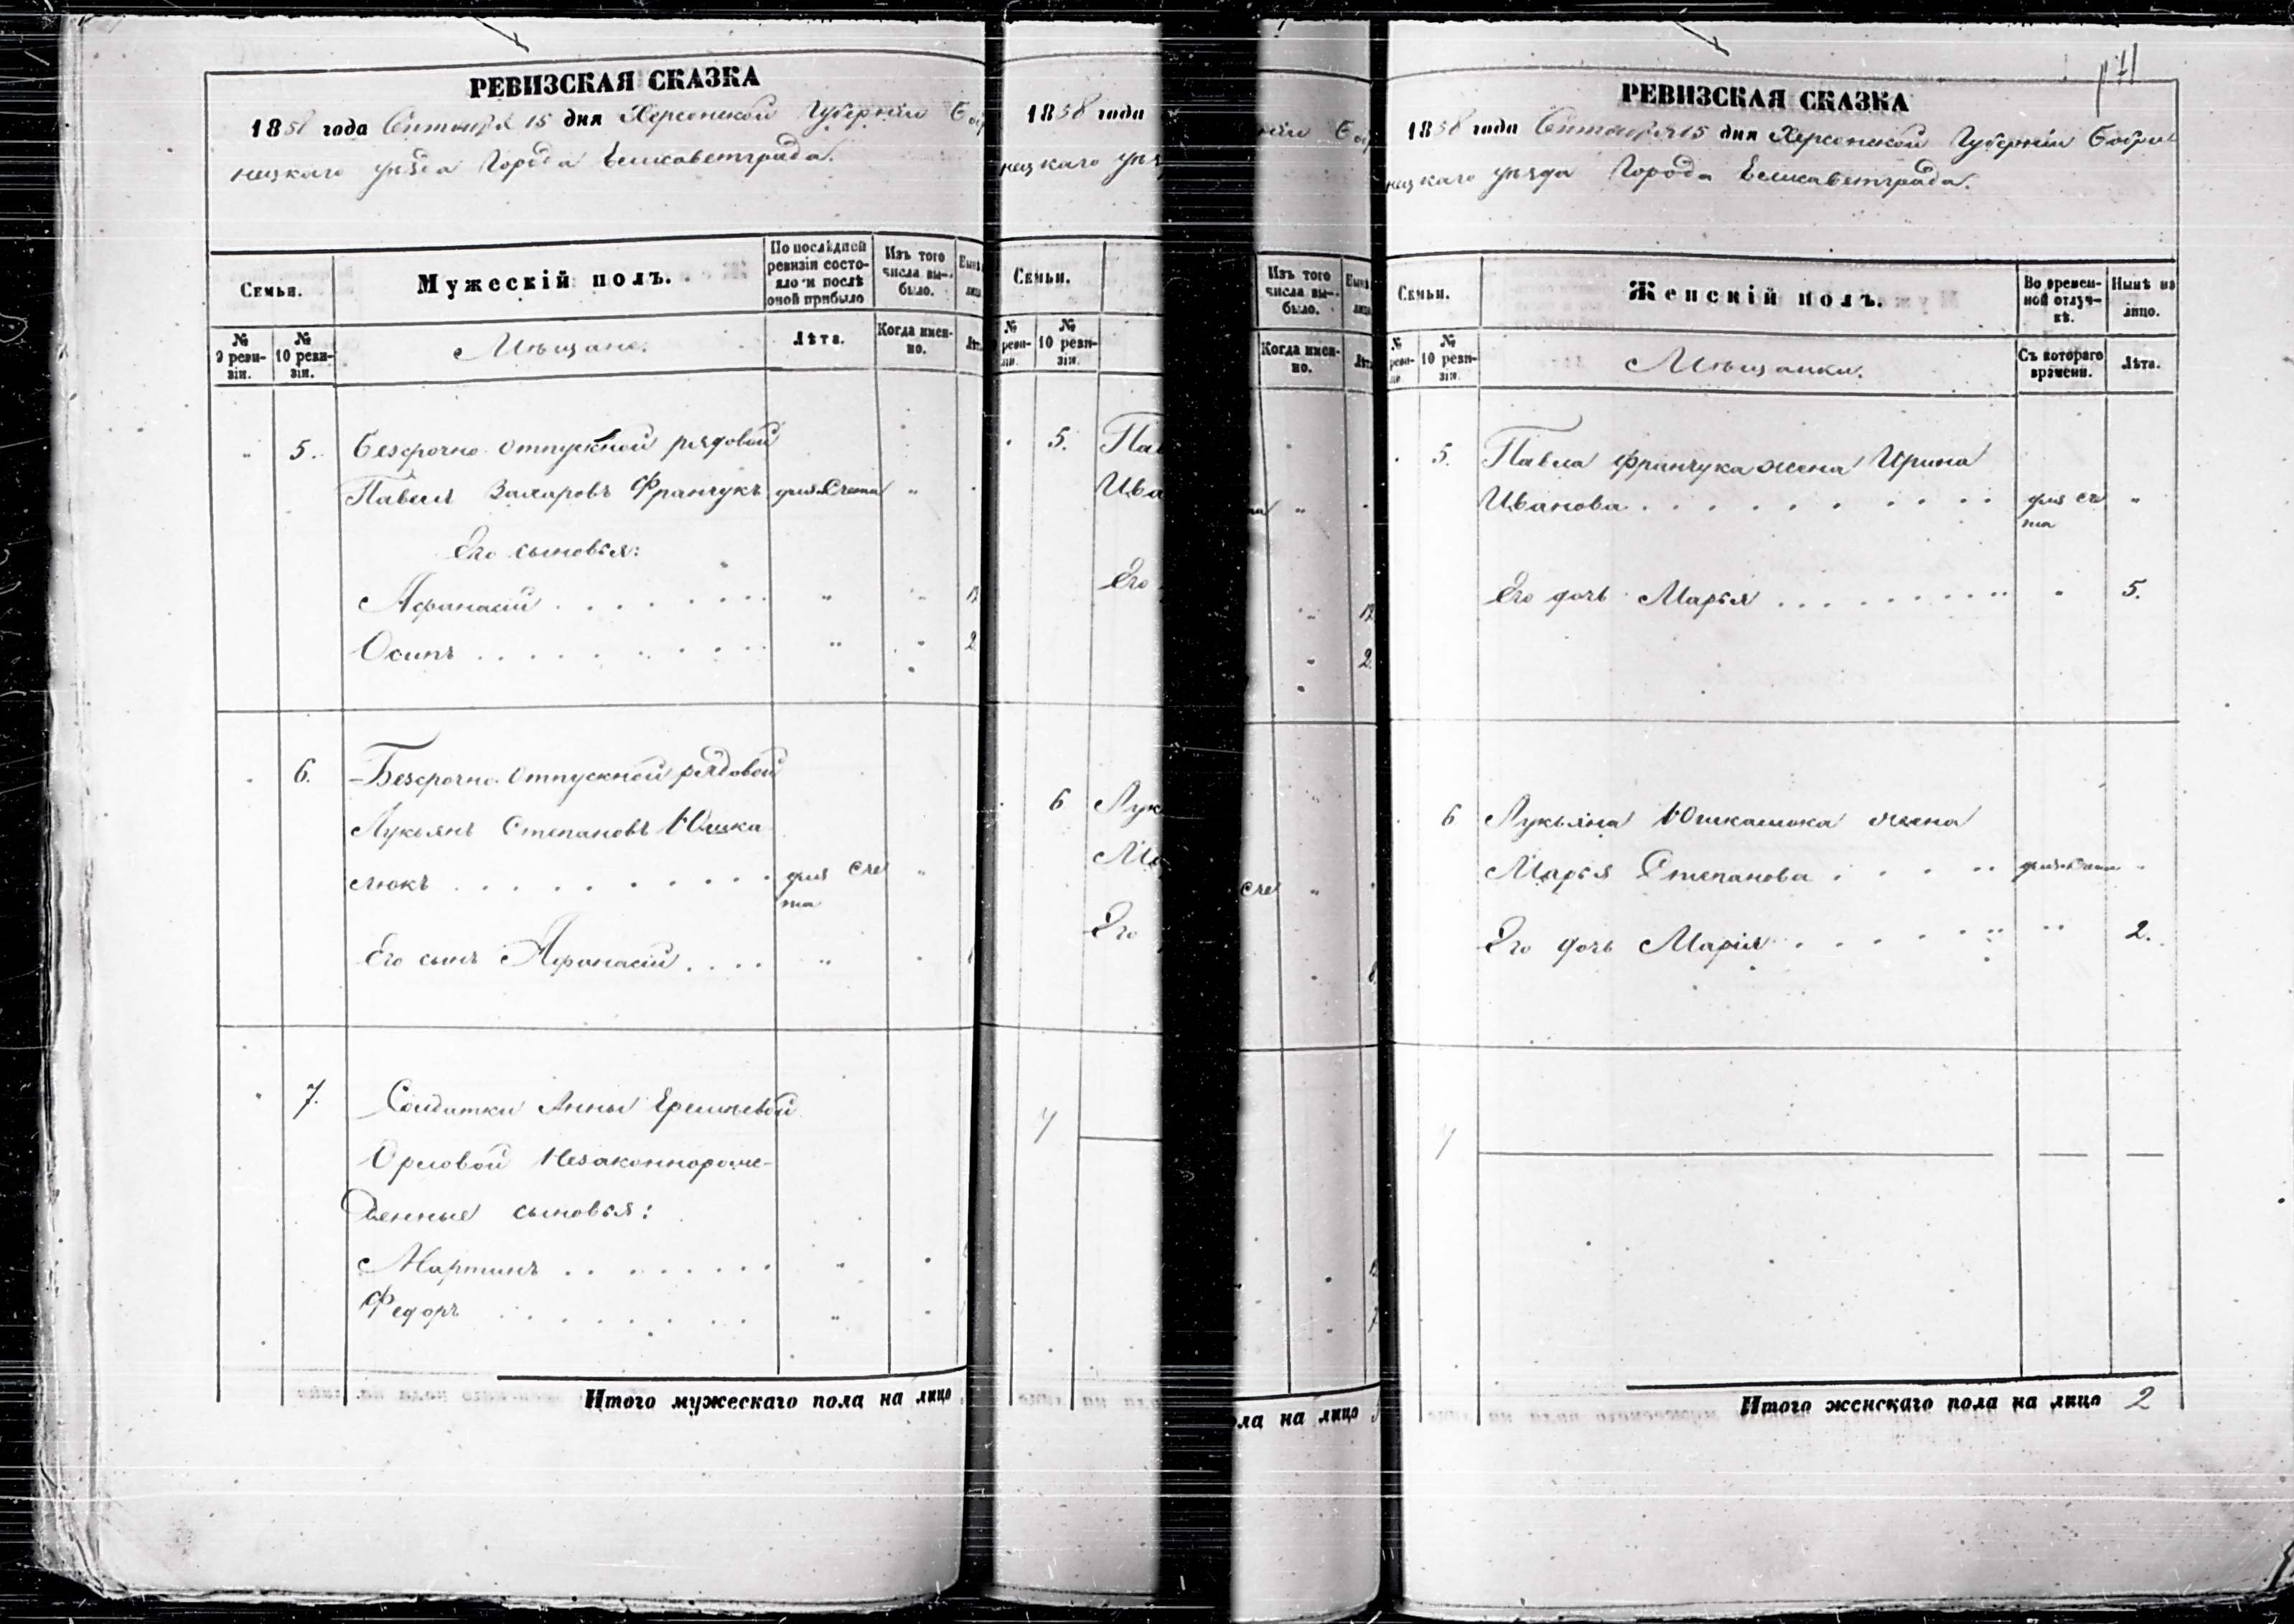 РЕВИЗСКАЯ СКАЗКА
1858 года Сентября 15 дня Херсонской Губерніи Бобри
нецкаго уѣзда Города Елисаветграда.
Семьи.
Мужескій полъ.
По послѣдней ревизіи состояло и послѣ оной прибыло
Изъ того числа выбыло.
№ 9 ревизіи.
№ 10 ревизіи.
Мѣщане.
Лѣта.
Когда именно.
5. Безсрочно отпускной рядовой
Павелъ Захаровъ Франчукъ для счета "
Его сыновья:
Афанасій . . . . . . . . " "
Осипъ . . . . . . . . . " "
6. Безсрочно отпускной рядовой
Лукьянъ Степановъ Юшка
люкъ . . . . . . . . . . для сче "
та
Его сынъ Афанасій . . . . "
7. Солдатки Анны
Орловой Незаконнорож-
денные сыновья:
Мартинъ . . . . . . . "
Федоръ . . . . . . . . "
Итого мужескаго пола на лицо
1858 года
нецкаго уѣз
Семьи.
№ реви-зіи.
№ 10 ревизіи.
5. Пав
Ива
Его
6 Лук
Ма
Его
7
Изъ того числа выбыло.
Когда именно.
12
2.
сче "
ола на лицо
РЕВИЗСКАЯ СКАЗКА
1858 года Сентября 15 дня Херсонской Губерніи Бобри
нецкаго уѣзда Города Елисаветграда.
Семьи.
Женскій полъ.
Во временной отлучкѣ.
Нынѣ на лицо.
№ 10 ревизіи.
Мѣщанки.
Съ котораго времени.
Лѣта.
5. Павла Франчука жена Ирина
Иванова . . . . . . . . . . для сче "
та
Его дочь Марья . . . . . . . . . " 5.
6 Лукьяна Юшкалюка жена
Марья Степанова . . . . . для счета "
Его дочь Марія . . . . . . " 2.
7
Итого женскаго пола на лицо 2